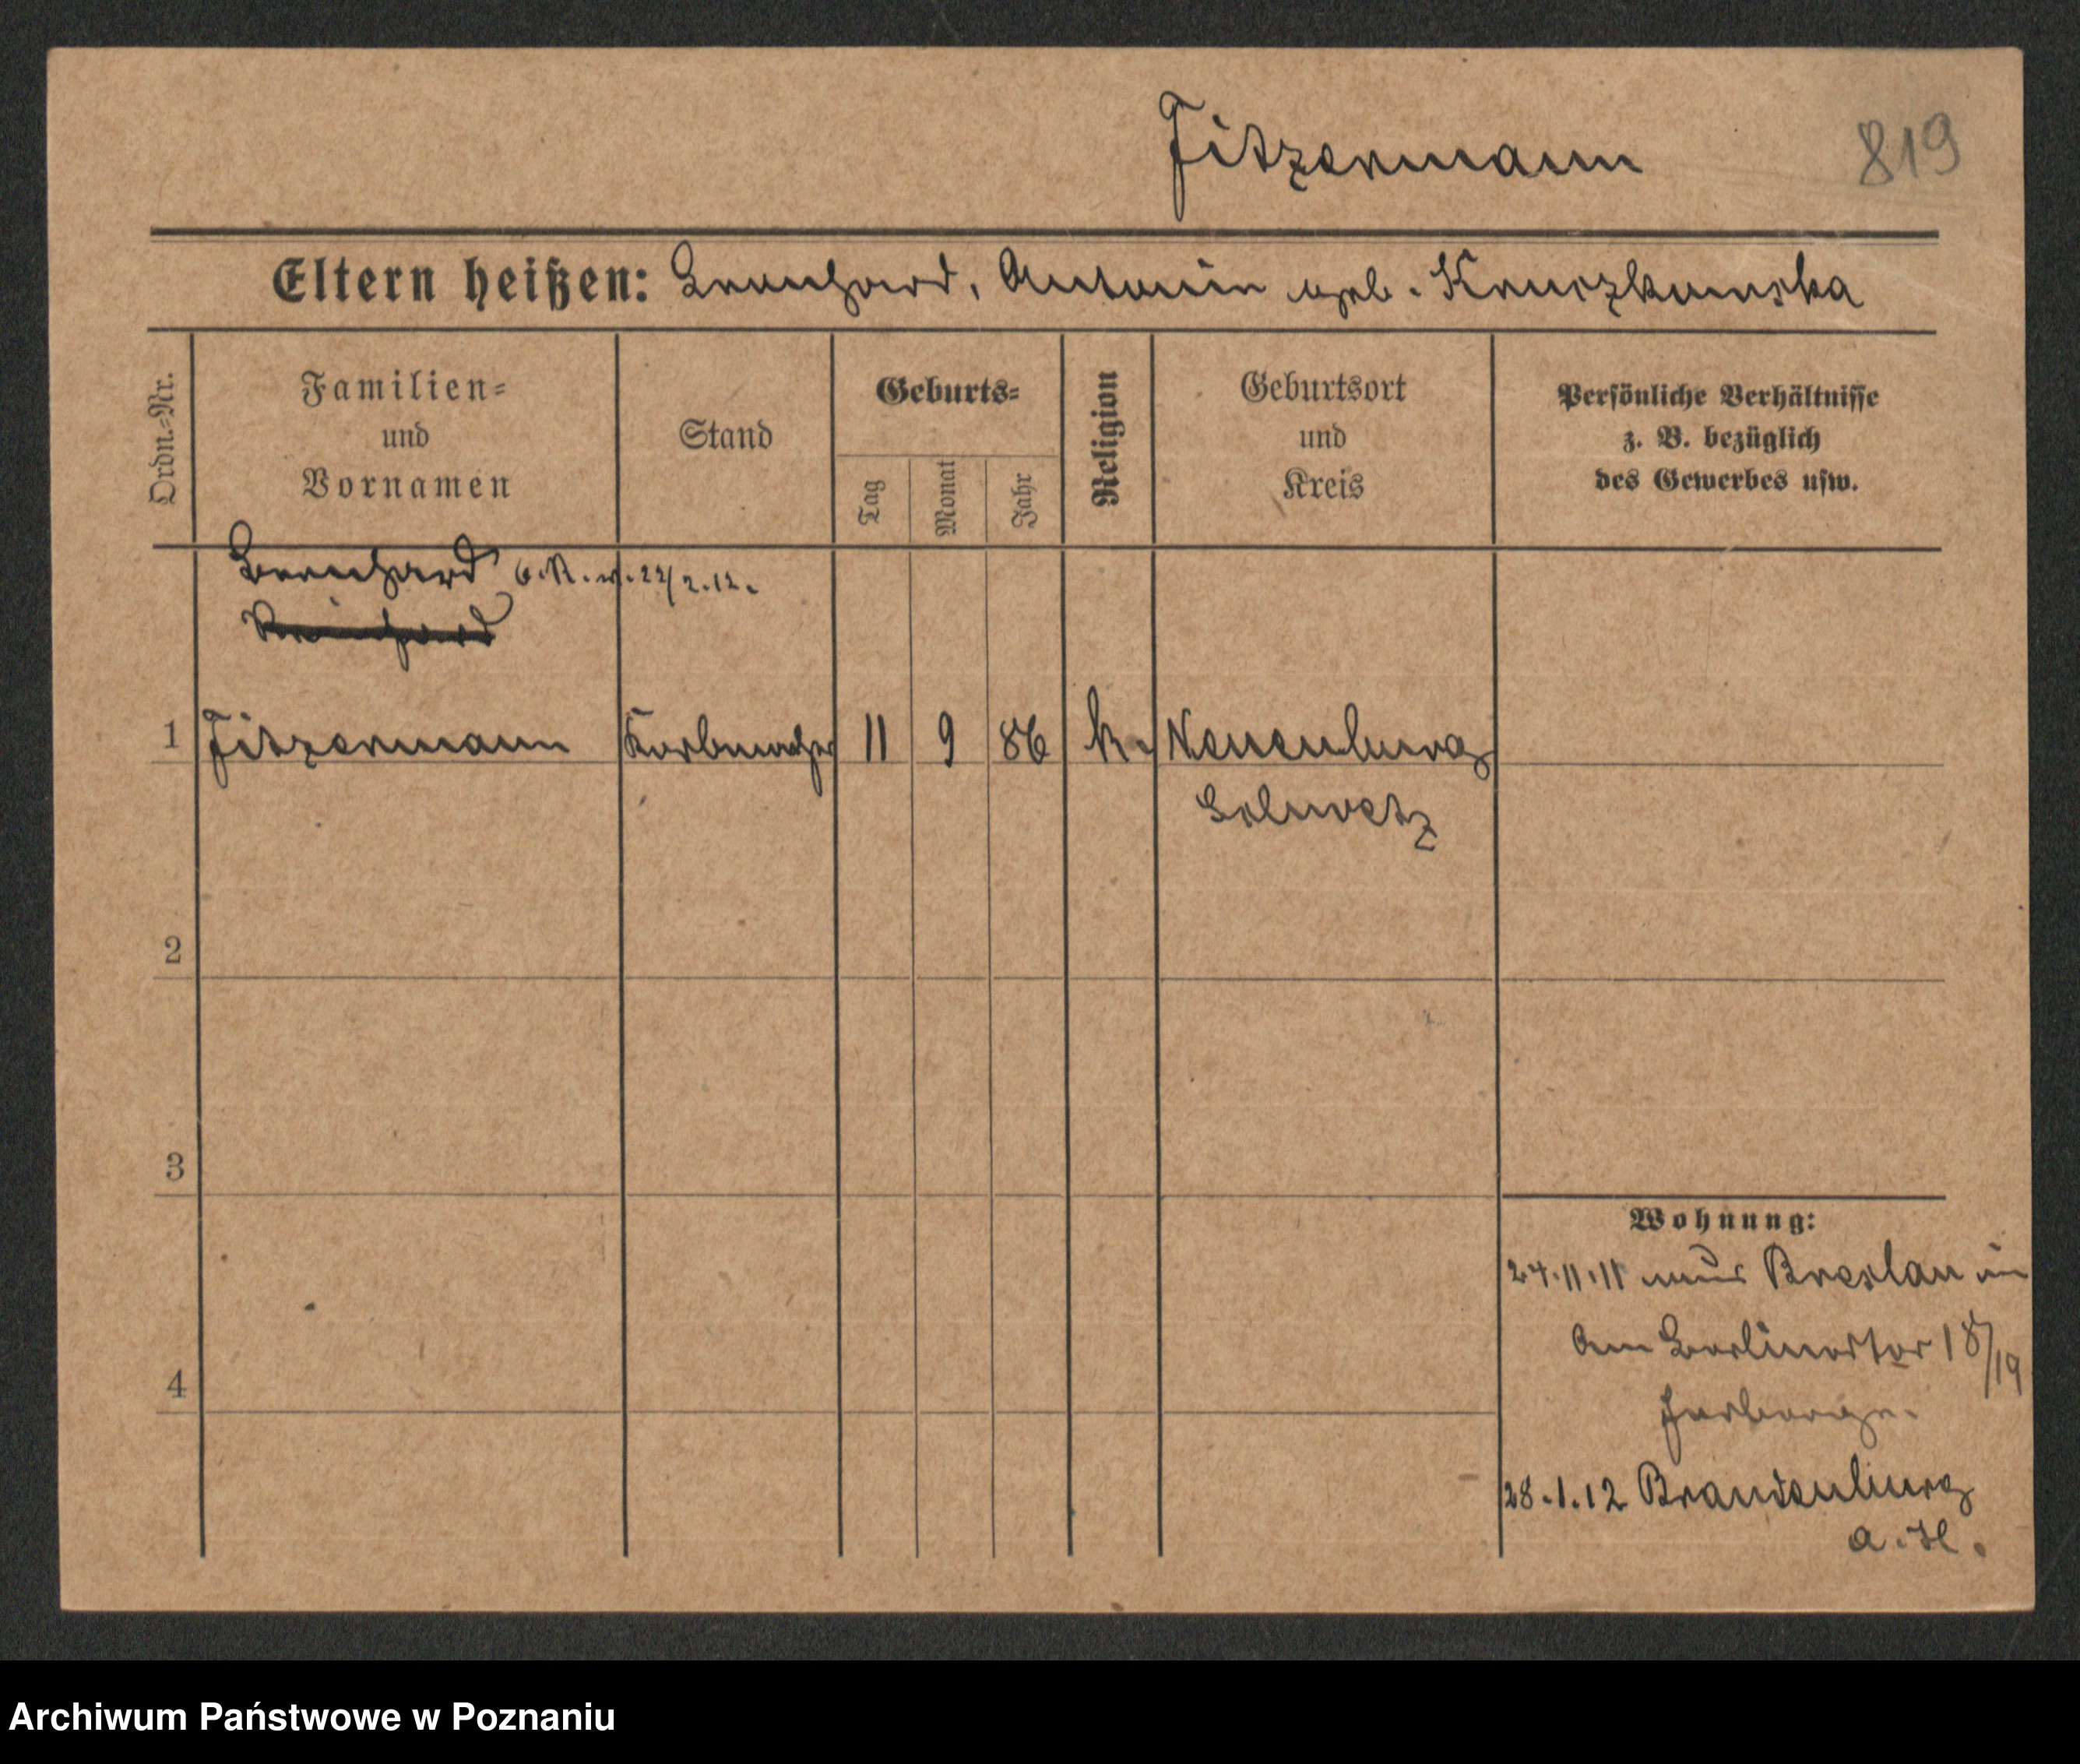 Fitzermann
819
Eltern heißen: Bernhard, Antonin geb. Kruczkowska
Ordn.-Nr.
Familien-
und
Vornamen
Stand
Geburts-
Tag
Monat
Jahr
Religion
Geburtsort
und
Kreis
Persönliche Verhältnisse
z. B. bezüglich
des Gewerbes usw.
Bernhard 22/2.12.
Reinhard
1 Fitzermann Korbmacher 11 9 86 k. Neuenburg
Schwetz
2
3
4
Wohnung:
24.11.11 aus Breslau in
Am Berlinertor 18/19
Herberge.
28.1.12 Brandenburg
a. H.
Archiwum Państwowe w Poznaniu